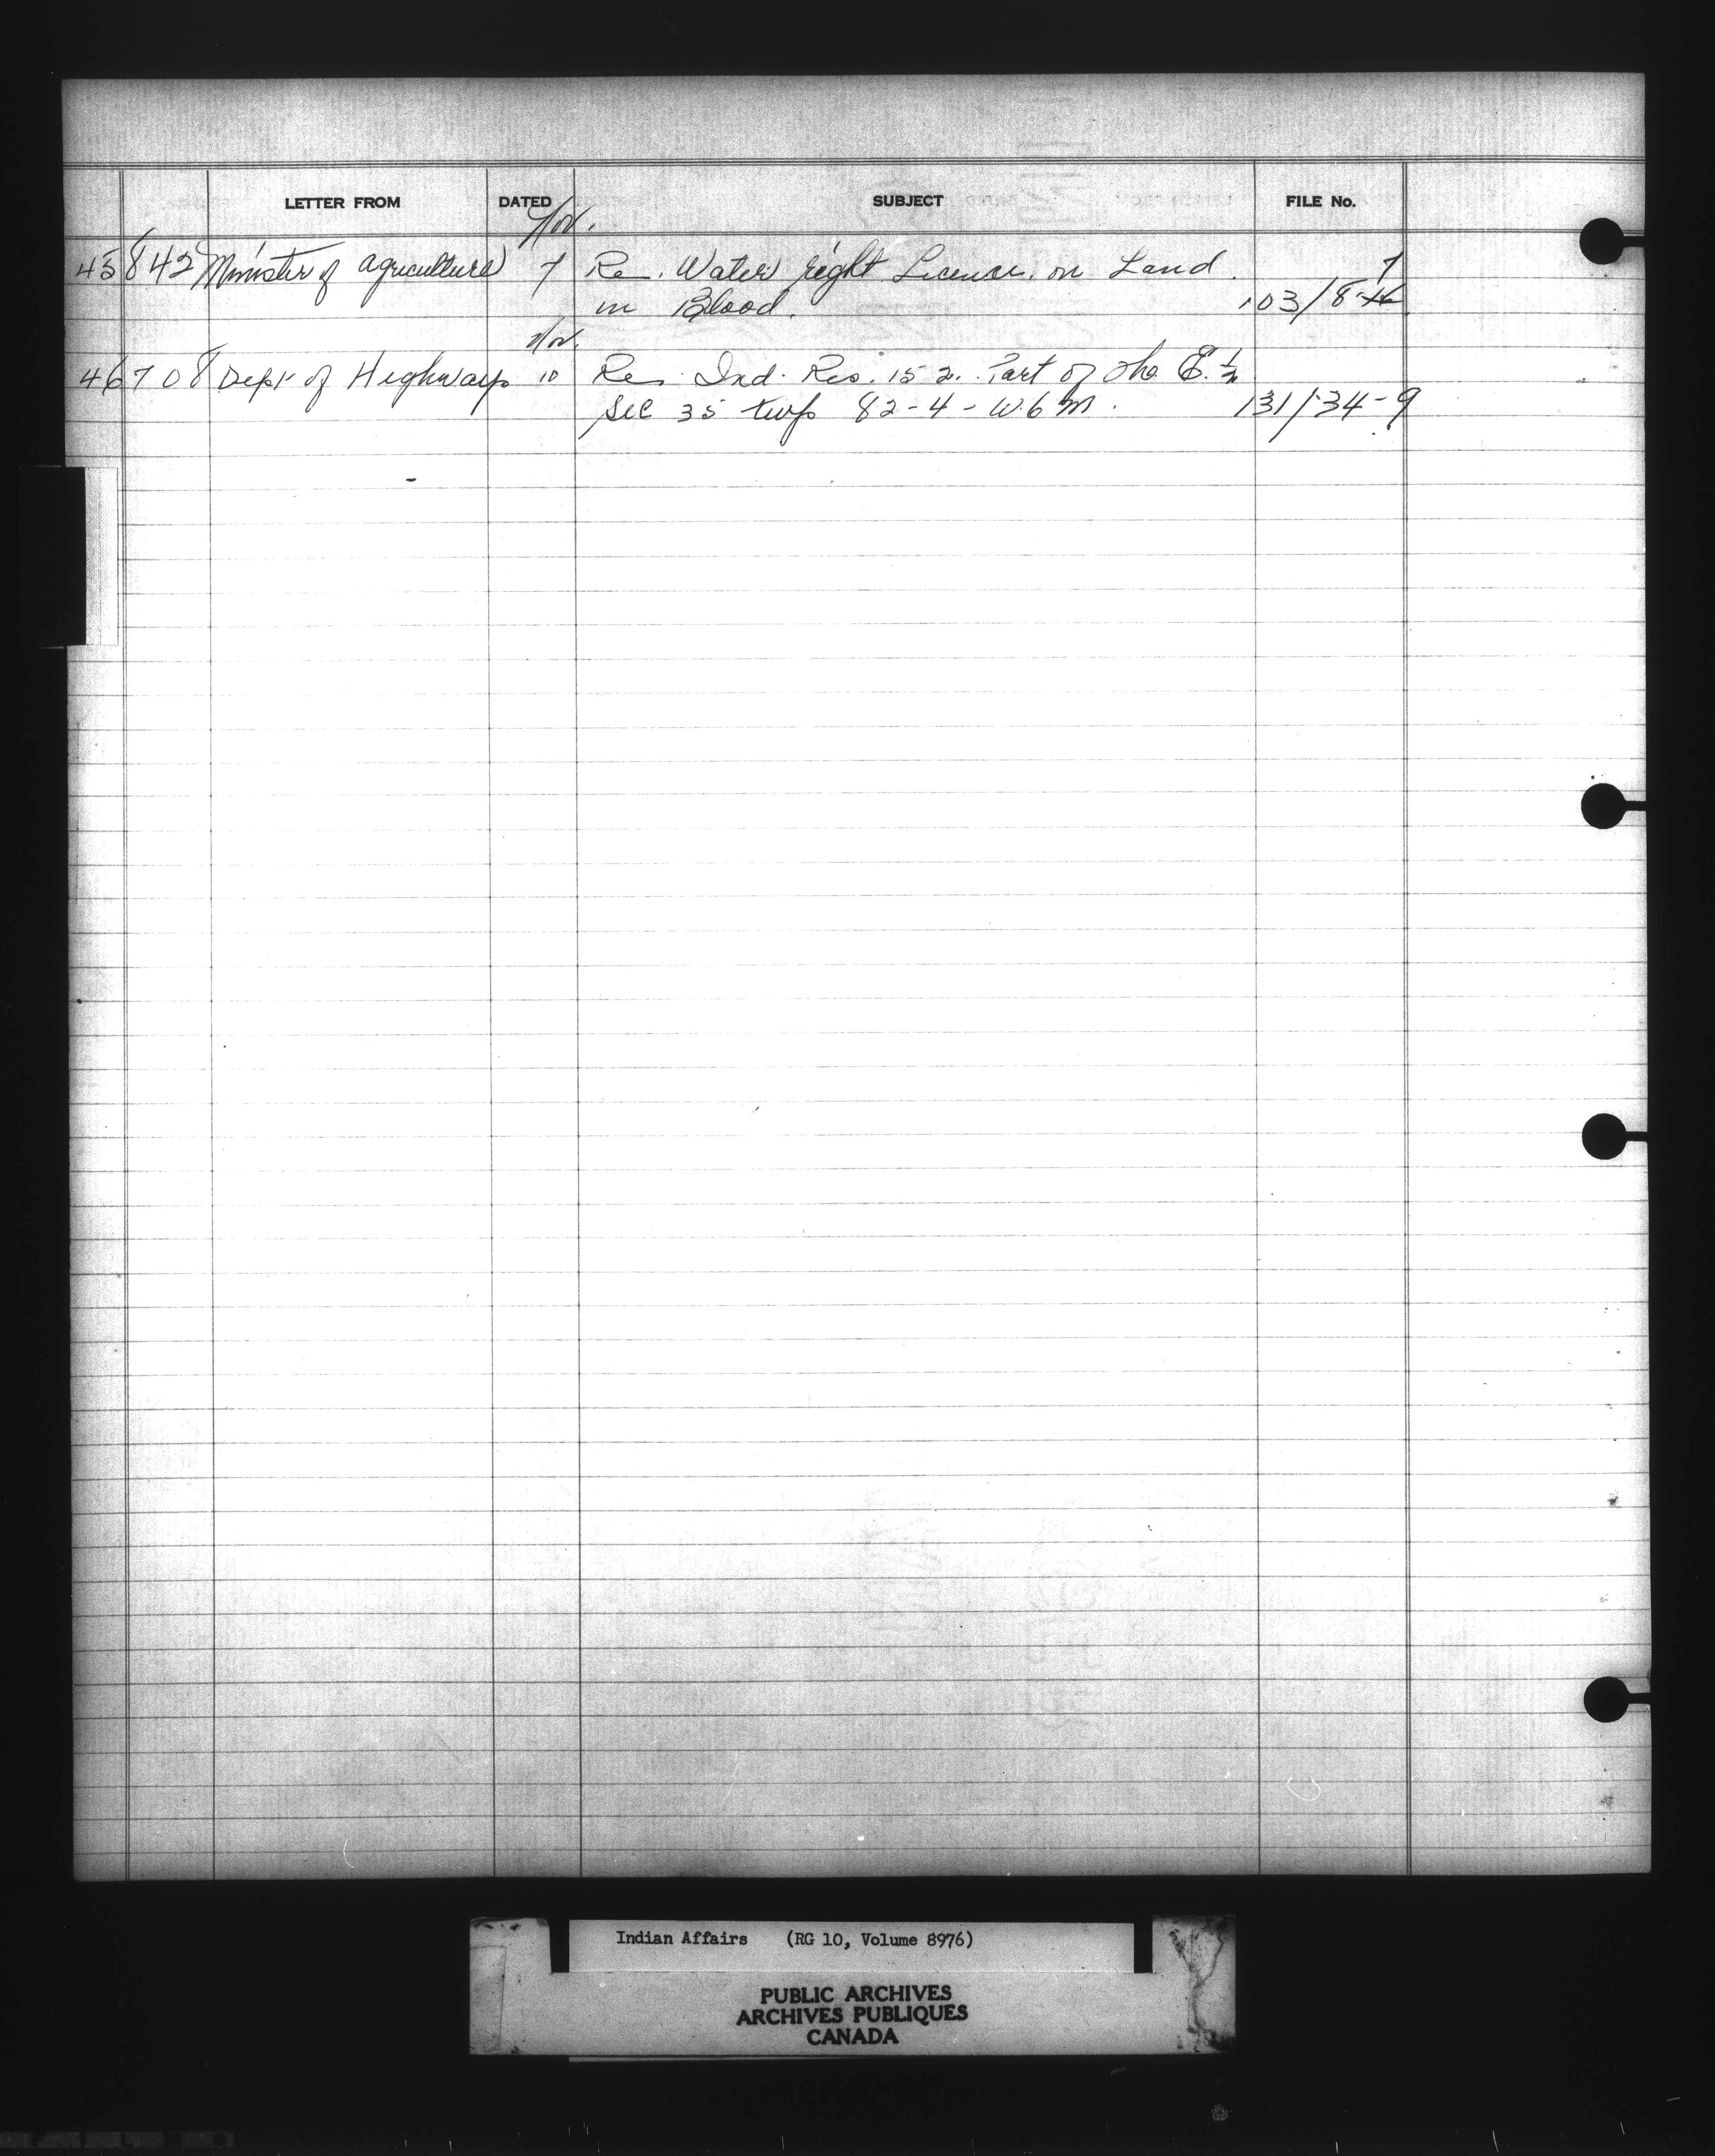 LETTER FROM DATED SUBJECT FILE No.
Nov.
45 842 Minister of agriculture 7 Re. Water right License. on Land. 7
in Blood. 103/8-
Nov.
46 708 Dept of Highways 10 Re. Ind. Res. 152. Part of the E. ½
Sec 35 twp 82-4-W.6 M. 131/34-9
Indian Affairs (RG 10, Volume 8976)
PUBLIC ARCHIVES
ARCHIVES PUBLIQUES
CANADA